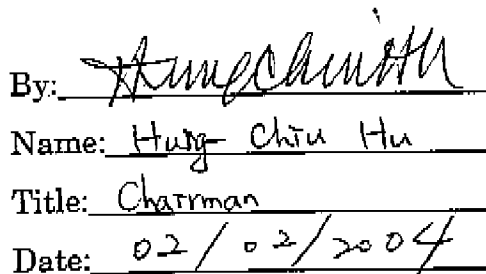 By:
Name: Hung Chiu Hu
Title: Chairman
Date: 02/02/2004